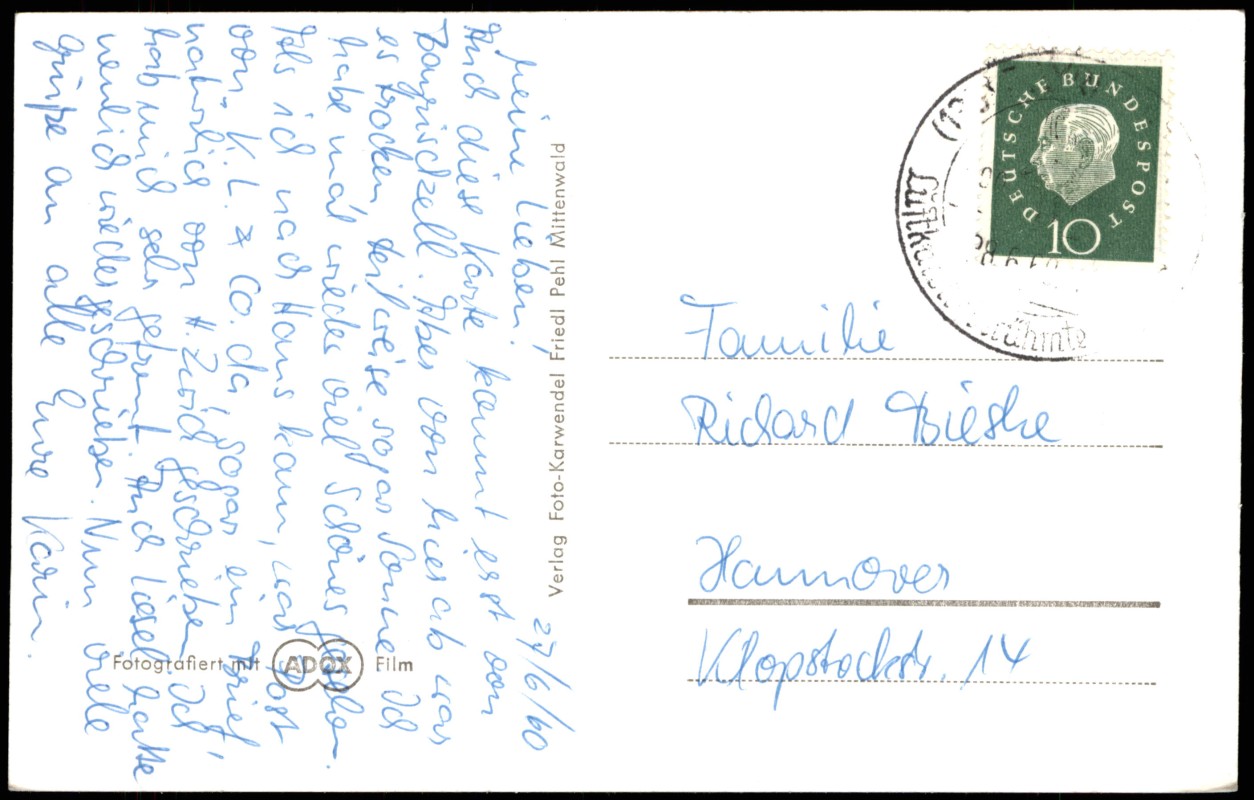 Meine Lieben! 27/6/60
Auch diese Karte kommt erst von
Bayrischzell. Aber von hier ab war
es trocken, teilweise sogar Sonne. Ich
habe mal wieder viel Schönes gesehen.
Als ich nach Haus kam, war Post
von K. L. & Co. da, sogar ein Brief
natürlich von H. geschrieben. Ich
hab mich sehr gefreut. Auch Liesel hatte
neulich wieder geschrieben. Nun viele
Grüße an alle Eure Karin.
Verlag Foto-Karwendel Friedl Pehl Mittenwald
Fotografiert mit ADOX Film
DEUTSCHE BUNDESPOST
10
Familie
Richard Bieske
Hannover
Klopstockstr. 14